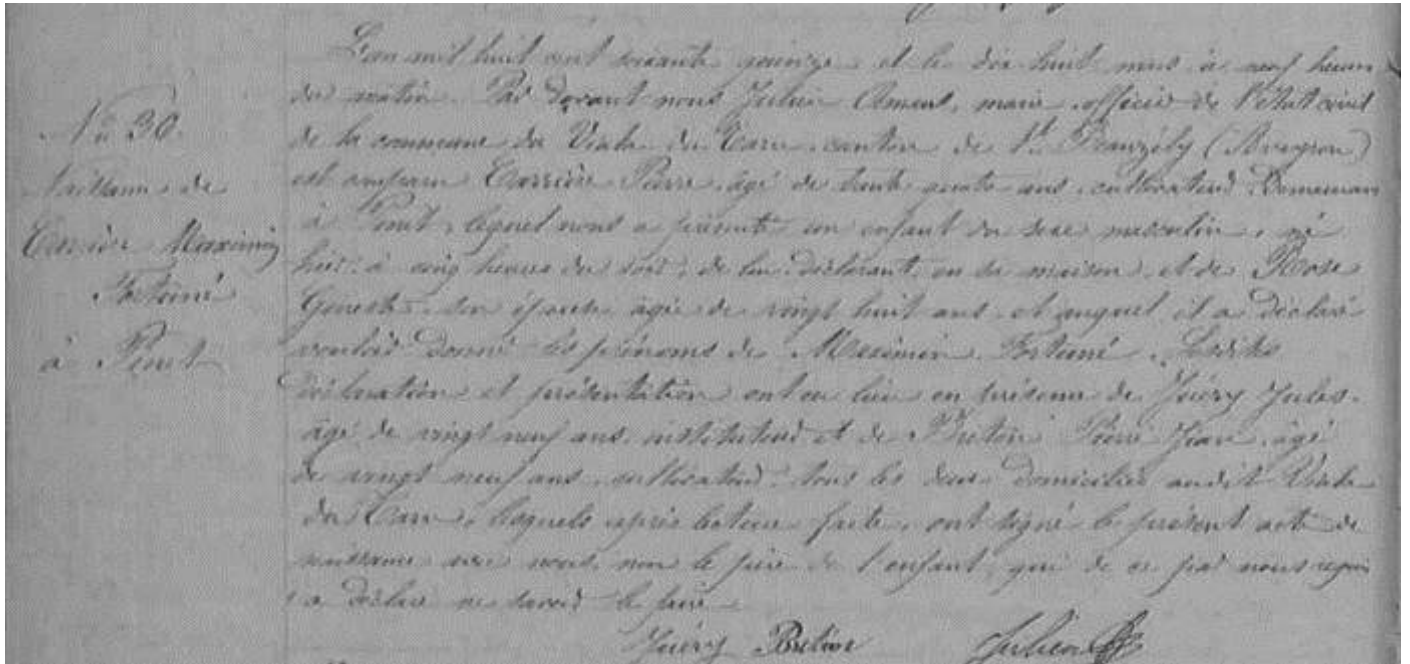 N° 30
Naissance de
Carrière Maximin
Fortuné
à Pinet
L'an mil huit cent soixante quinze et le dix huit mars à neuf heures
du matin. Par devant nous Julien Clément, maire officier de l'état civil
de la commune du Viala du Tarn canton de St Beauzély (Aveyron)
est comparu Carrière Pierre âgé de trente quatre ans, cultivateur Demeurant
à Pinet, lequel nous a présenté un enfant du sexe masculin, né
hier à cinq heures du soir, de lui déclarant en sa maison, et de Rose
son épouse âgée de vingt huit ans et auquel il a déclaré
vouloir donner les prénoms de Maximin Fortuné. Lesdites
déclaration et présentation ont eu lieu en présence de Jules
âgé de vingt neuf ans instituteur et de Pierre Jean âgé
de vingt neuf ans cultivateur tous les deux domiciliés audit Viala
du Tarn, lesquels après lecture faite, ont signé le présent acte de
naissance avec nous, non le père de l'enfant, qui de ce par nous requis
a déclaré ne savoir le faire
Julien